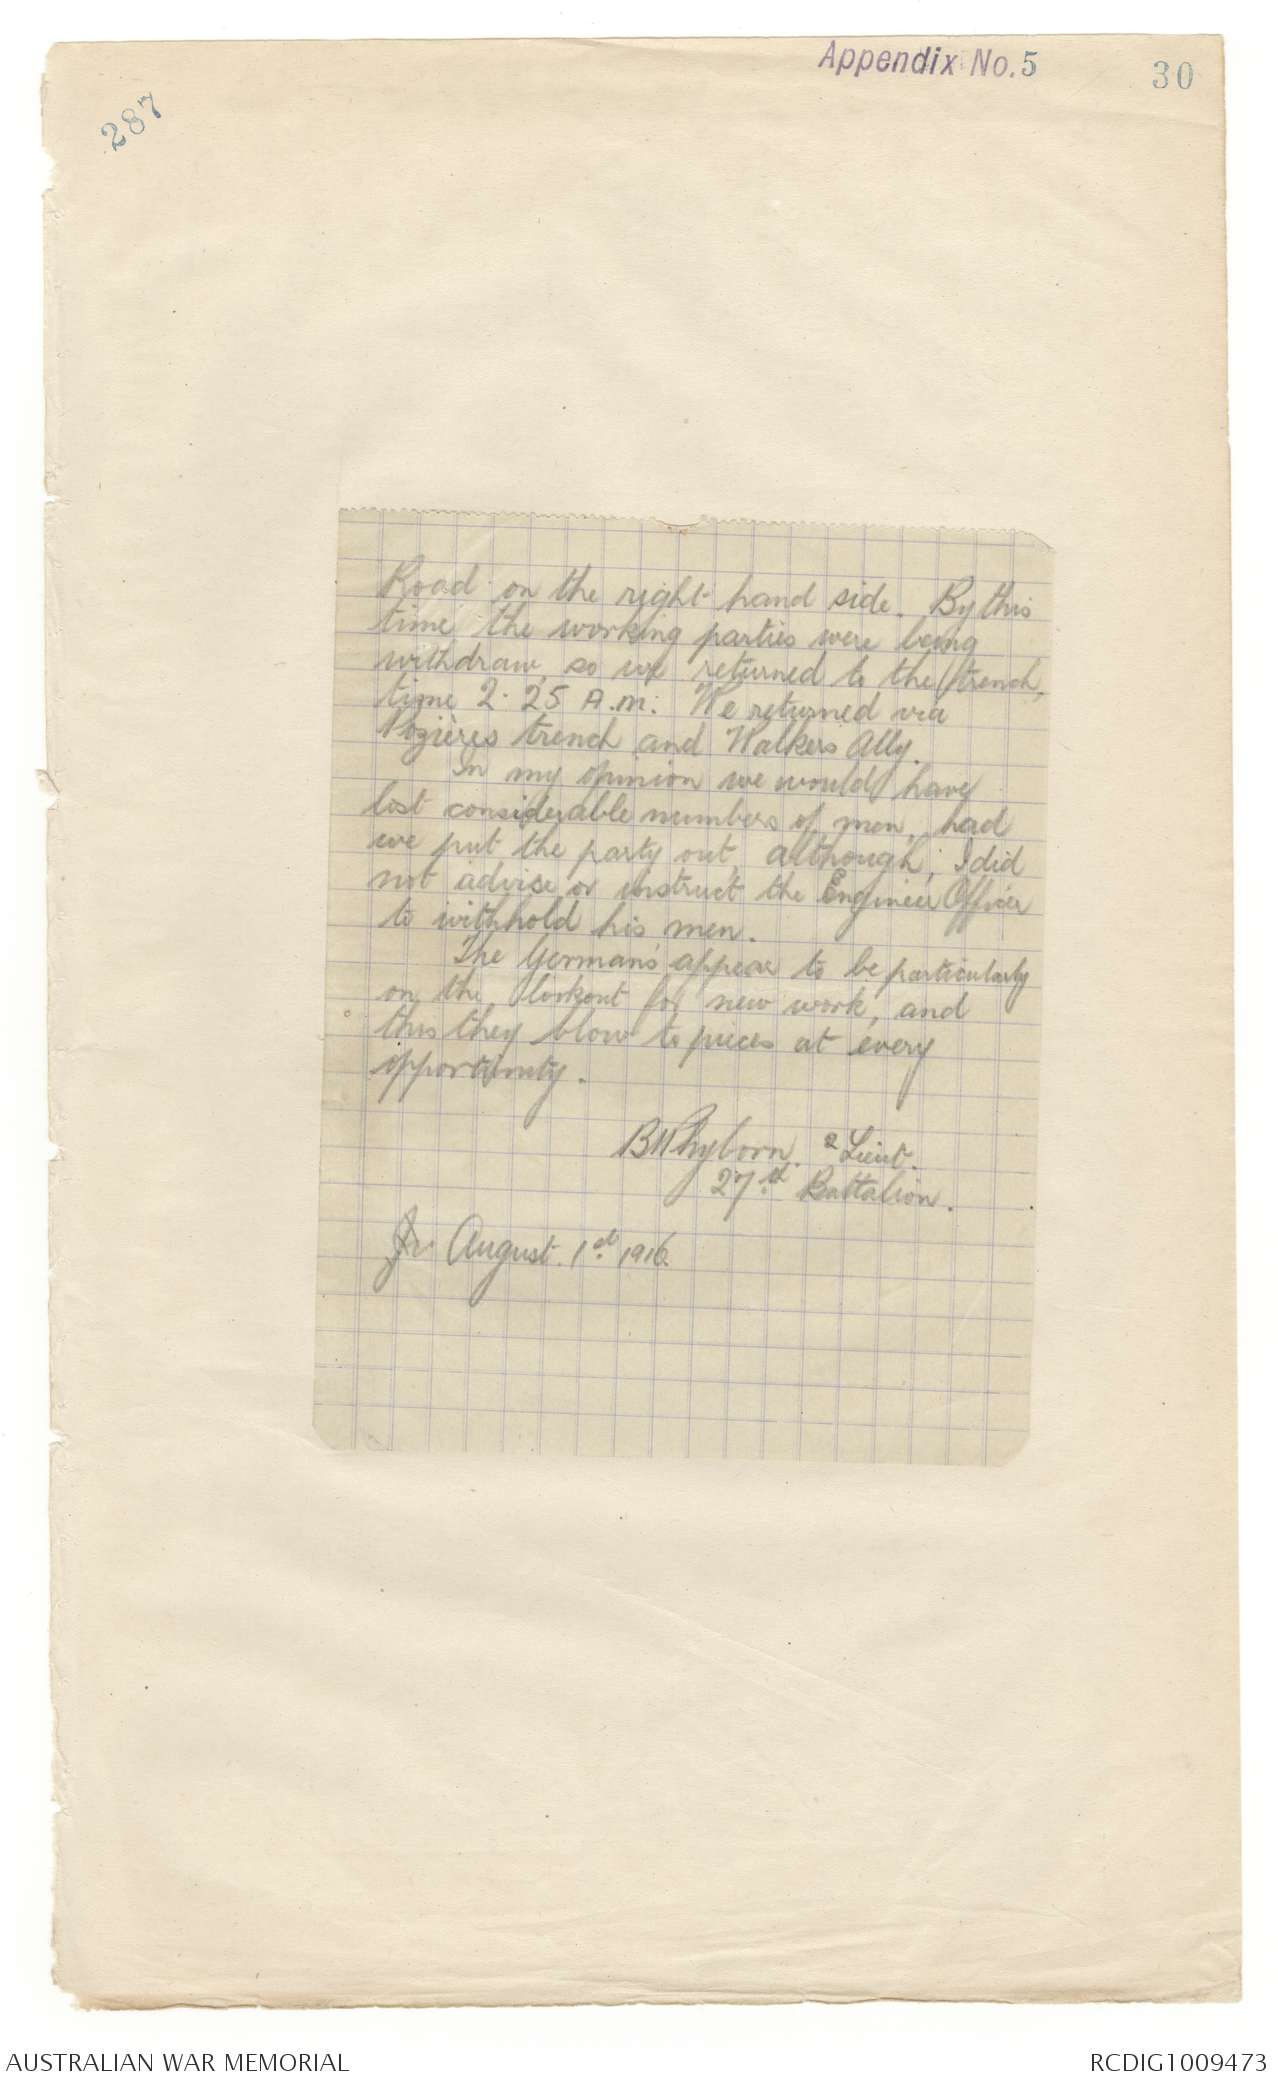 Appendix No. 5
30
287
Road on the right hand side. By this
time the working parties were being
withdraw, so we returned to the trench,
time 2.25 A.m. We returned via
Pozières trench and Walkers Ally.
In my opinion we would have
lost considerable numbers of men, had
we put the party out, although, I did
not advise or instruct the Engineer Officer
to withhold his men.
The Germans appear to be particularly
on the lookout for new work, and
this they blow to pieces at every
opportunity.
2 Lieut.
27th Battalion.
August. 1st 1916
AUSTRALIAN WAR MEMORIAL
RCDIG1009473